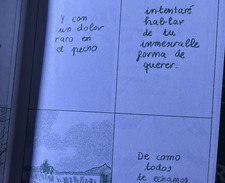 y con
un dolor
raro en
el pecho
intentaré
hablar
de tu
inmesuralle
forma de
querer.
De como
todos
te echamos